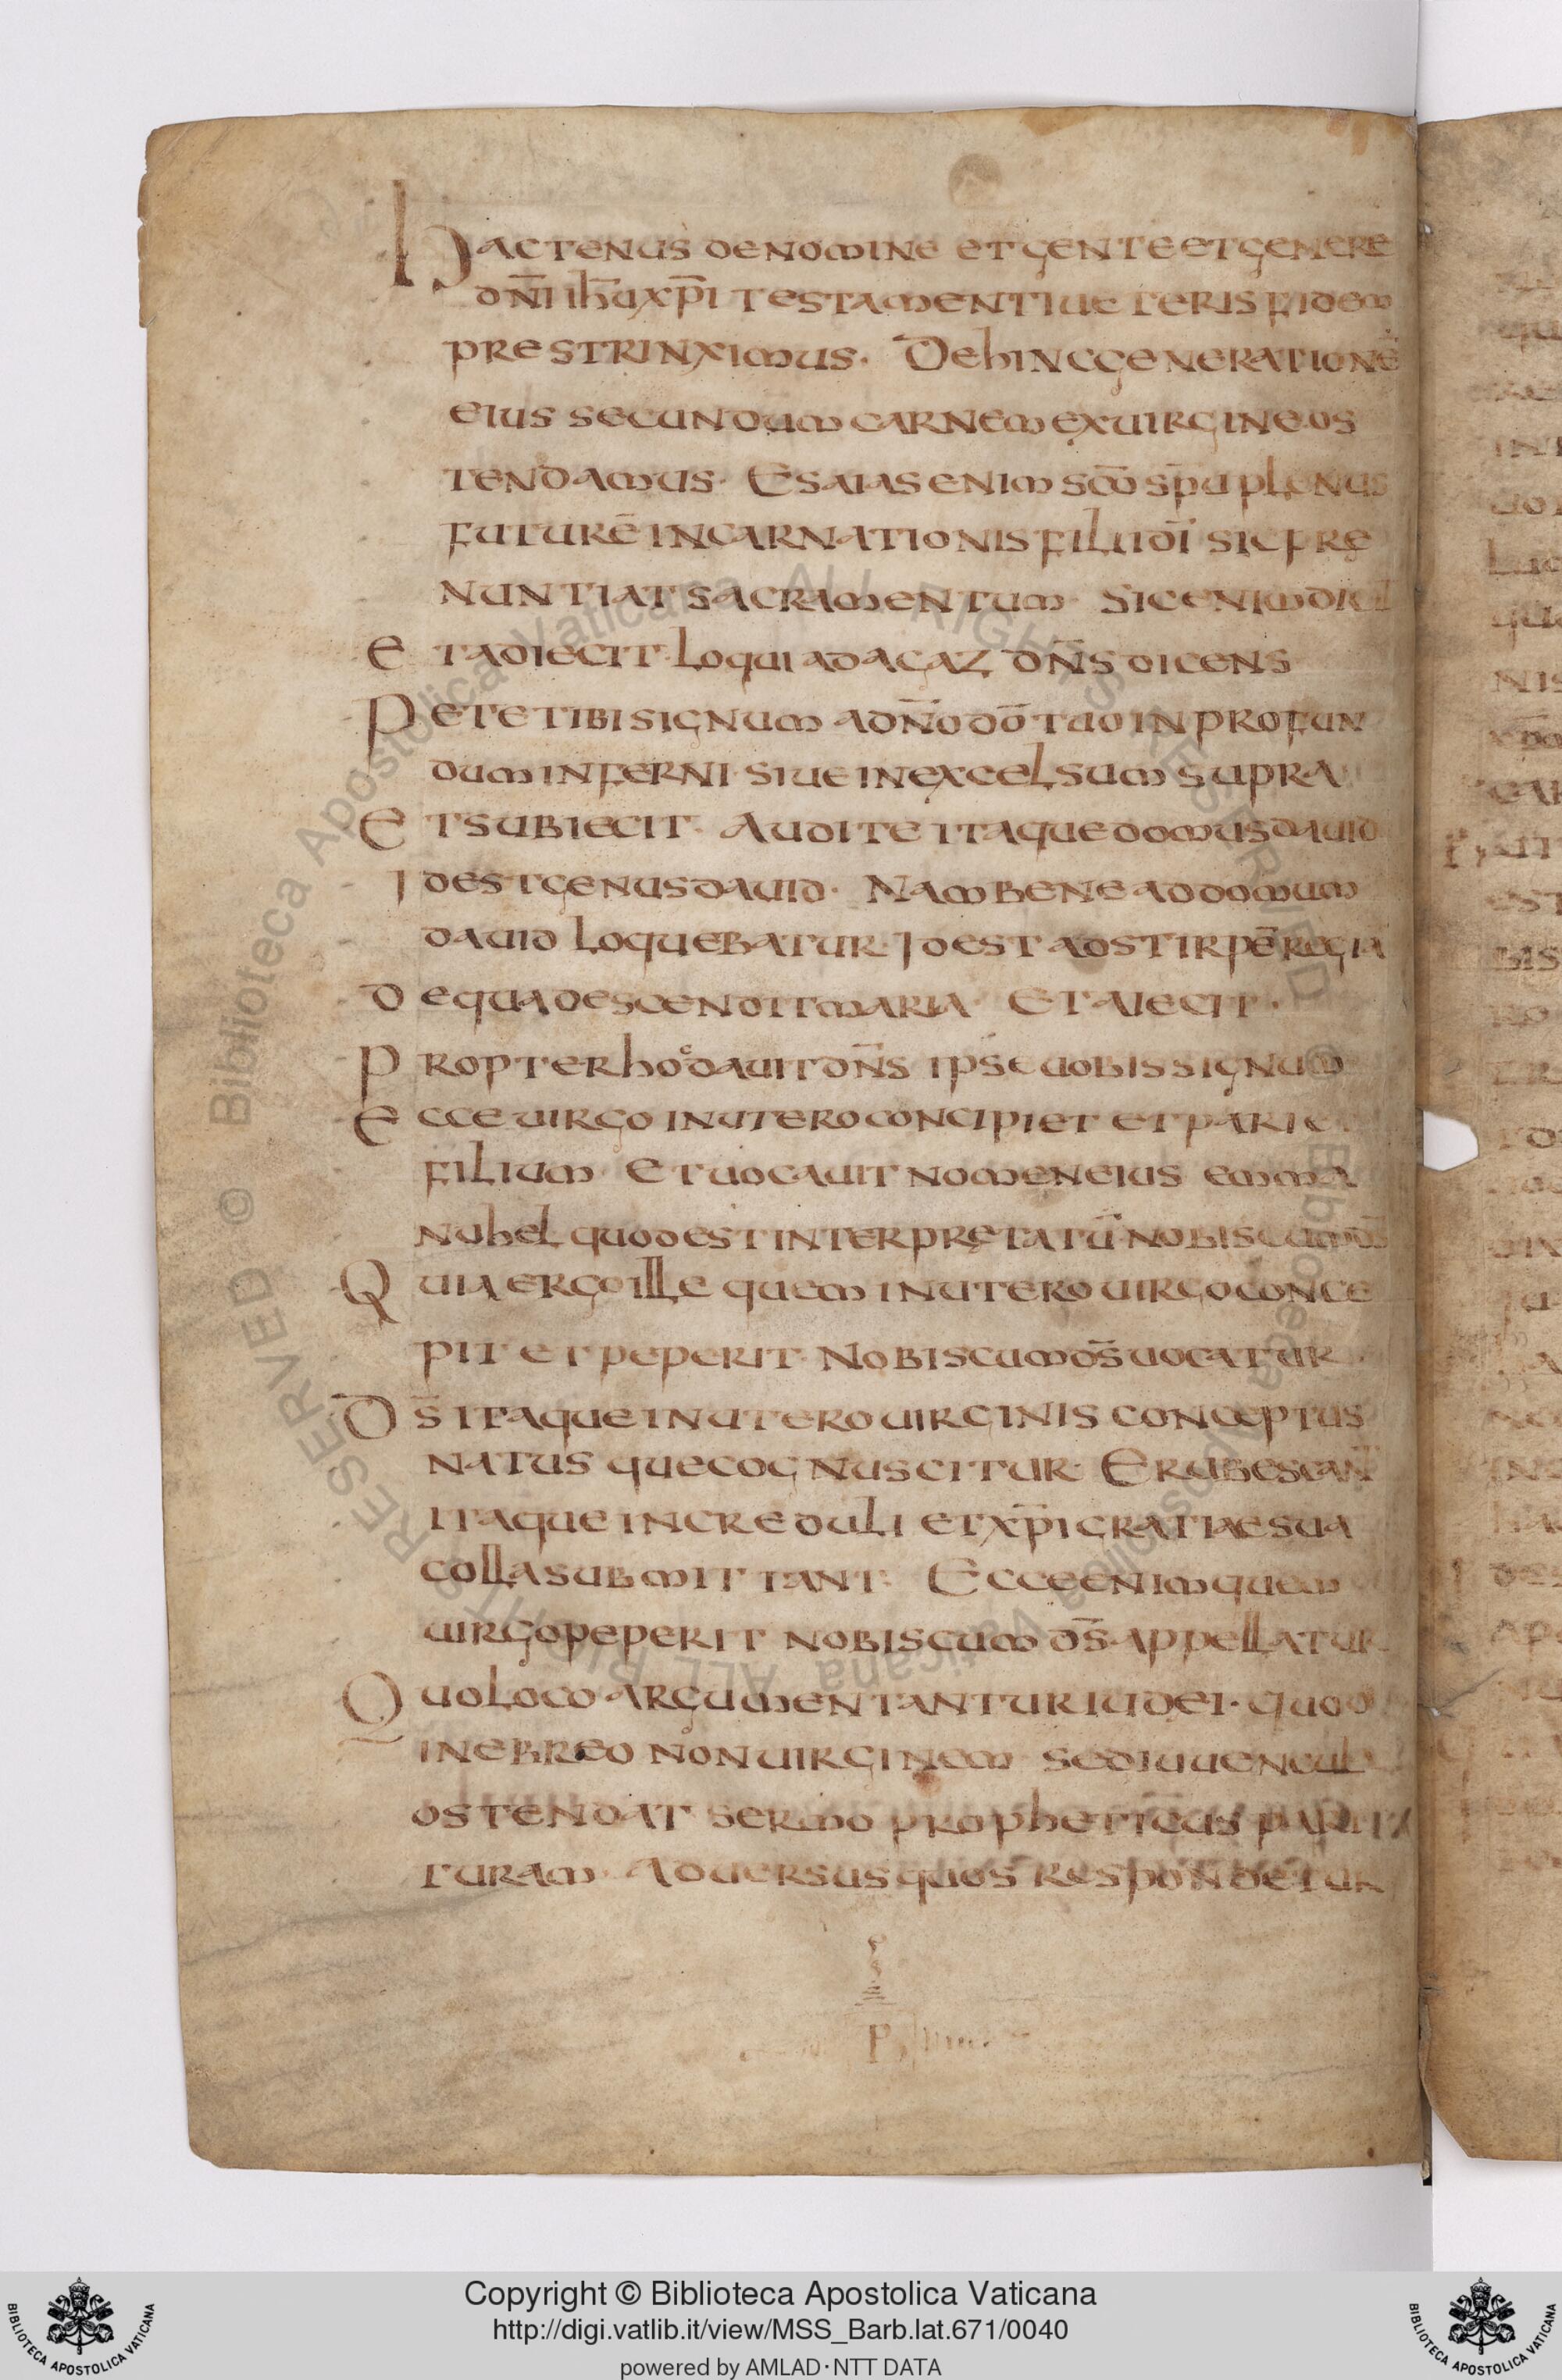 HACTENUS DENOMINE ETGENTEETGENERE
DN̄I IHŪXP̄I TESTAMENTIUETERIS FIDEM
PRESTRINXIMUS· DEHINCGENERATIONĒ
EIUS SECUNDUM CARNEM EXUIRGINEOS
TENDAMUS· ESAIASENIM SCŌ SP̄U PLENUS
FUTURE INCARNATIONIS FILIIDĪ SIC PRE
NUNTIAT SACRAMENTUM· SICENIM
ETADIECIT·LOQUI ADAGAZ DN̄S DICENS
PETETIBISIGNUM ADN̄ODŌTUOINPROFUN
DUMINFERNI·SIUE INEXCELSUM SUPRA
ETSUBIECIT· AUDITE ITAQUEDOMUSDAUID
IDESTGENUSDAUID· NAMBENEADDOMUM
DAUID LOQUEBATUR·IDEST ADSTIRPĒREGIA
DEQUADESCENDITMARIA· ETAIECIT·
PROPTERHOCDAUITDN̄S IPSEUOBISSIGNUM
ECCEUIRGO INUTEROCONCIPIET ETPARIE
FILIUM· ETUOCAUIT NOMENEIUS EMMA
NUHEL QUODESTINTERPRETATŪ·NOBISCUMDS̄
QUIAERGOILLE QUEM INUTERO UIRGOCONCE
PIT ET PEPERIT· NOBISCUMDS̄UOCATUR·
DS̄ITAQUEINUTEROUIRGINIS CONCEPTUS
NATUS QUECOGNUSCITUR· ERUBESCAN
ITAQUEINCREDULI ETXP̄IGRATIAESUA
COLLASUBMITTANT· ECCEENIMQUEM
UIRGOPEPERIT NOBISCUM DS̄·APPELLATUR
QUOLOCO ARGUMENTANTURIUDEI·QUOD
INEBREO NONUIRGINEM SEDIUUENCUL
OSTENDAT SERMO PROPHETICUS PARITA
TURAM· ADUERSUSQUOS RESPONDETUR
Copyright © Biblioteca Apostolica Vaticana
http://digi.vatlib.it/view/MSS_Barb.lat.671/0040
powered by AMLAD·NTT DATA
BIBLIOTECA APOSTOLICA VATICANA
BIBLIOTECA APOSTOLICA VATICANA